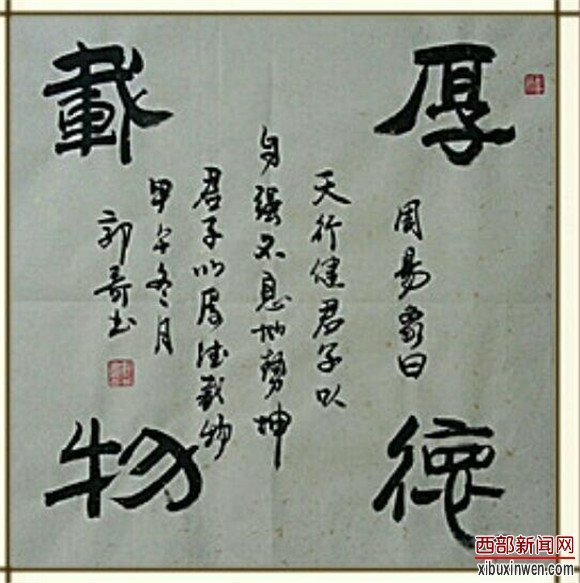 厚德
載物
周易象曰
天行健君子以
自强不息地勢坤
君子以厚德載物
甲午冬月
郭奇书
西部新闻网
xibuxinwen.com